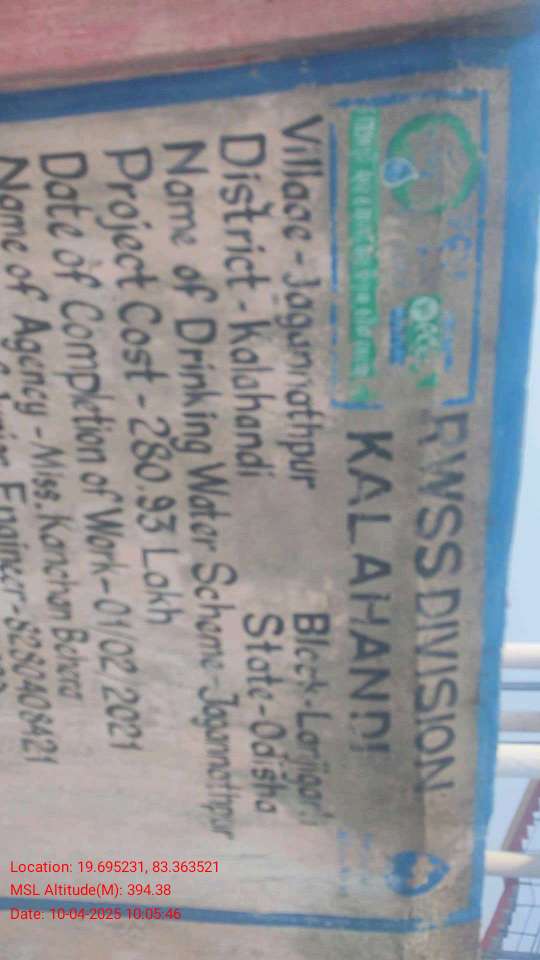 RWSS DIVISION
KALAHANDI
Village - Jagannathpur Block - Lanjigarh
District - Kalahandi State - Odisha
Name of Drinking Water Scheme - Jagannathpur
Project Cost - 280.93 Lakh
Date of Completion of Work - 01/02/2021
Name of Agency - Miss. Kanchan Behera
Engineer - 8280408421
Location: 19.695231, 83.363521
MSL Altitude(M): 394.38
Date: 10-04-2025 10:05:46